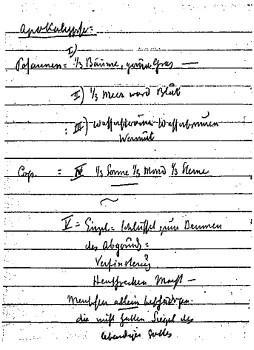 Apokalypse:
I)
Posaunen = 1/3 Bäume, grünes Gras —
II) 1/3 Meer ward Blut
: III) Wasserströme-Wasserbrunnen
Wermut
: IV 1/3 Sonne 1/3 Mond 1/3 Sterne
V = Engel = Schlüssel zum Brunnen
des Abgrunds =
Verfinsterung
Heuschrecken Macht —
Menschen allein
die nicht hatten Siegel des
lebendigen Gottes